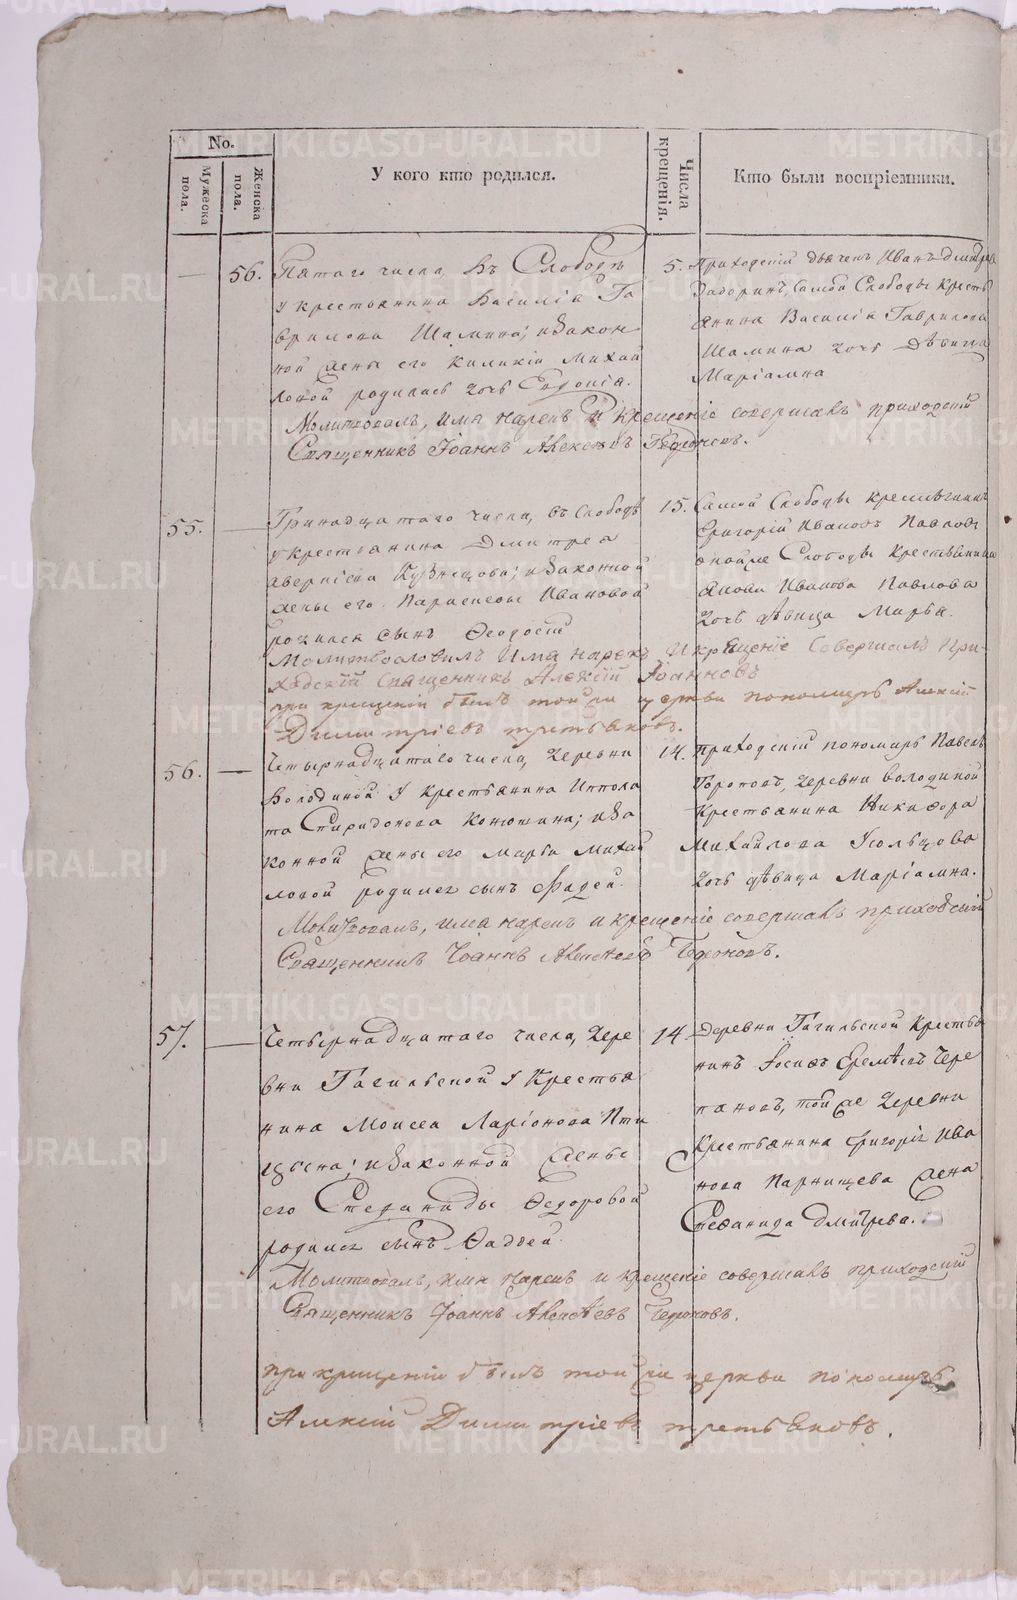 No.
Мужеска пола.
Женска пола.
У кого кто родился.
Числа крещенія.
Кто были воспріемники.
56. Пятаго числа, въ Слободѣ
у крестьянина Василія Га
врилова Шамина; и закон
ной жены его Киликіи Михай
ловой родилась дочь Евдокія.
5. Приходскій дьячекъ Иванъ Дмитріевъ
Задоринъ, самой Слободы кресть
янина Василія Гаврилова
Шамина дочь дѣвица
Маріамна
Молитвовалъ, имя нарекъ и крещеніе совершалъ приходскій
Священникъ Іоаннъ Алексѣевъ
55. Тринадцатаго числа, въ слободѣ
у крестьянина Дмитрея
аверкіева Кузнецова; и законной
жены его Параскевы Ивановой
родился сынъ Ѳеодосій
15. Самой Слободы
Григорій Ивановъ Павловъ
Слободы крестьянина
Ивана Павлова
дочь дѣвица Марья.
Молитвословилъ Имя нарекъ И крещеніе Совершалъ При-
ходскій Священникъ Алексій Іоанновъ
при крещеніи былъ той же церкви пономарь Алексій
Димитріевъ третьяковъ.
56. Четырнадцатаго числа, деревни
Володиной у крестьянина Иппола
та Спиридонова Конюшина; и за
конной жены его Марьи Михай
ловой родился сынъ Фадей.
14. приходскій пономарь Павелъ
Тороповъ, деревни володиной
крестьянина Никифора
Михайлова Усольцова
дочь дѣвица Маріамна.
Молитвовалъ, имя нарекъ и крещеніе совершалъ приходскій
Священникъ Іоаннъ Алексѣевъ
57. Четырнадцатаго числа, дере
вни Тагильской у Крестья
нина Моисея Ларіонова Пти
цына; и законной жены
его Степаниды Ѳедоровой
родился сынъ Ѳаддей.
14. Деревни Тагильской Кресть
нинъ Іосифъ Еремѣевъ Чере
пановъ, той же деревни
Крестьянина Григорія Ива
нова Парнищева жена
Стефанида Дмитрева.
Молитвовалъ, имя нарекъ и крещеніе совершалъ приходскій
Священникъ Іоаннъ Алексѣевъ
при крещеніи былъ той же церкви пономарь
Алексій Димитріевъ третьяковъ.
METRIKI.GASO-URAL.RU